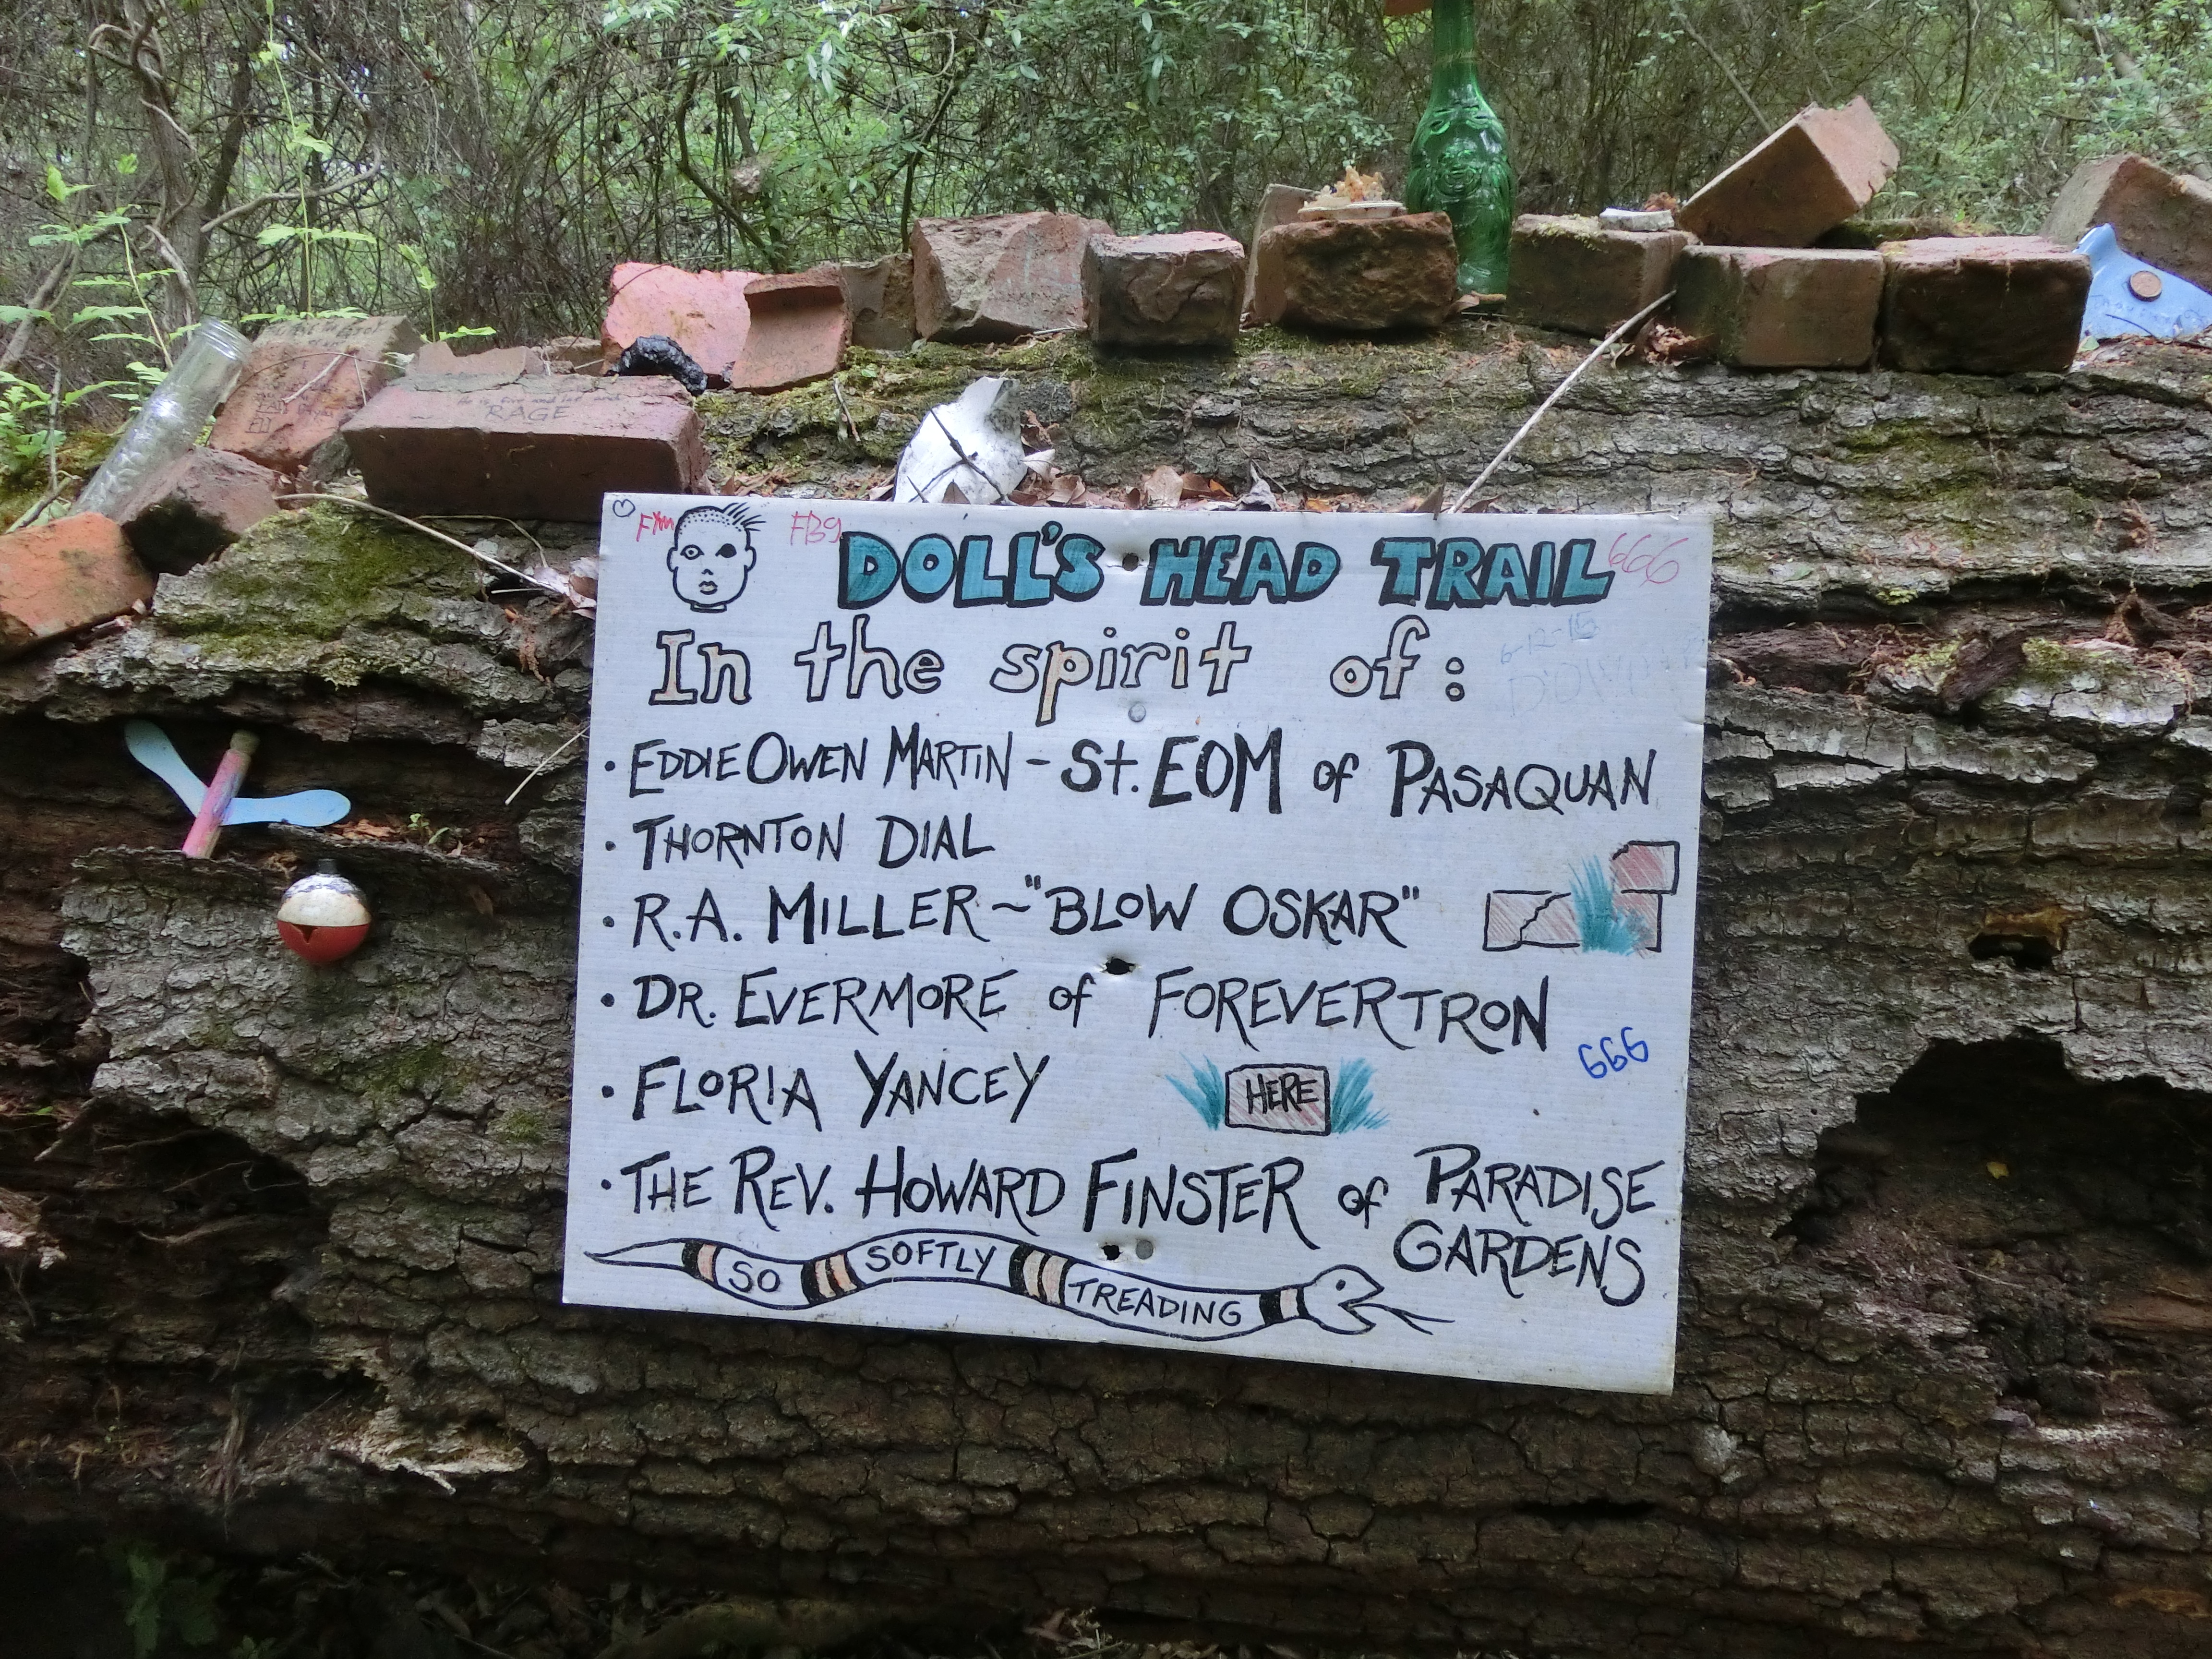 RAGE
DOLL'S HEAD TRAIL
666
In the spirit of:
6-12-16
• EDDIE OWEN MARTIN - St. EOM of PASAQUAN
• THORNTON DIAL
• R.A. MILLER ~ "BLOW OSKAR"
• DR. EVERMORE of FOREVERTRON
666
• FLORIA YANCEY
HERE
• THE REV. HOWARD FINSTER of PARADISE
GARDENS
SO SOFTLY TREADING